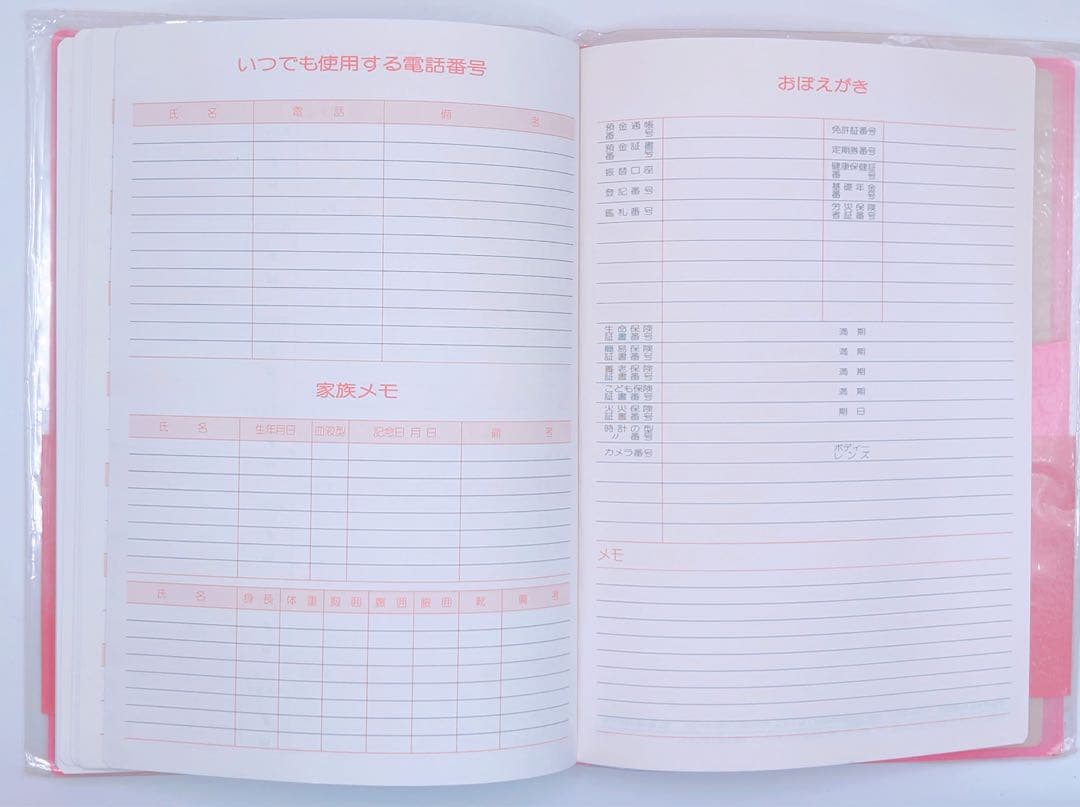 いつでも使用する電話番号
氏 名 電 話 備 考
家族メモ
氏 名 生年月日 血液型 記念日 月 日 備 考
氏 名 身 長 体 重 胸 囲 腹 囲 腰 囲 靴 備 考
おぼえがき
預金通帳番号 免許証番号
預金証書番号 定期券番号
振替口座 健康保健証番号
登記番号 基礎年金番号
鑑札番号 労災保険者証番号
生命保険証書番号 満 期
簡易保険証書番号 満 期
養老保険証書番号 満 期
こども保険証書番号 満 期
火災保険証書番号 期 日
時計の型 〃 番号
カメラ番号 ボディーレンズ
メモ